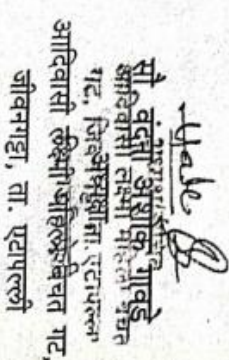 सौ वंदना अशोक गावडे
आदिवासी लक्ष्मी महिला बचत
गट, ता. एटापल्ली
आदिवासी लक्ष्मी बचत गट,
जीवनगट्टा, ता. एटापल्ली